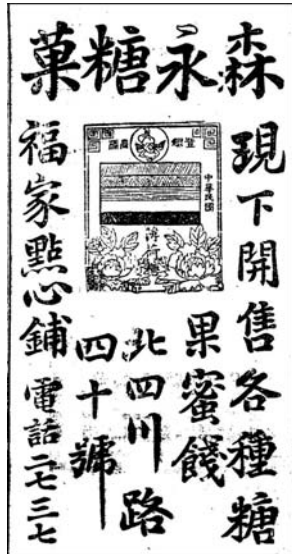 森永糖菓
現下開售各種糖
果蜜餞
北四川路
四十號
福家點心鋪 電話二七三七
中華民國